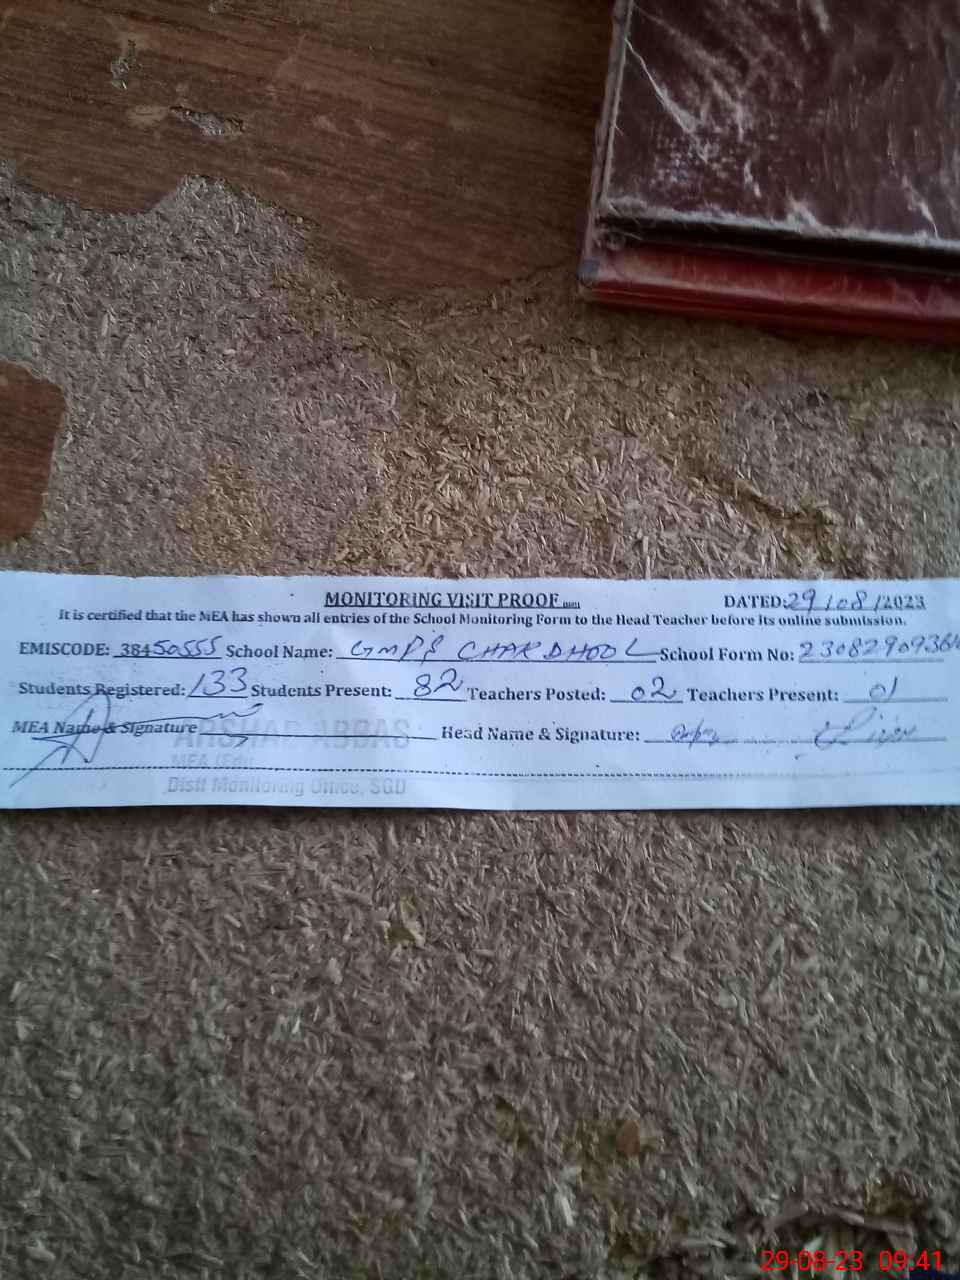 MONITORING VISIT PROOF DATED: 29/08/2023
It is certified that the MEA has shown all entries of the School Monitoring Form to the Head Teacher before its online submission.
EMISCODE: 38450555 School Name: GMPS CHAK DHOOL School Form No: 2308290936
Students Registered: 133 Students Present: 82 Teachers Posted: 02 Teachers Present: 01
MEA Name & Signature ARSHAD ABBAS Head Name & Signature:
MEA (Edu)
Distt Monitoring Office, SGD
29-08-23 09:41